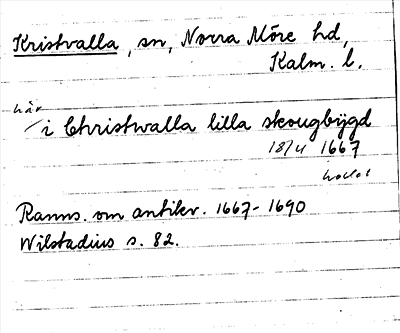 Kristvalla, sn, Norra Möre hd,
Kalm. l.
här
i Christwalla lilla skougbÿgd
18/4 1667
Ranns. om antikv. 1667-1690
Wilstadius s. 82.